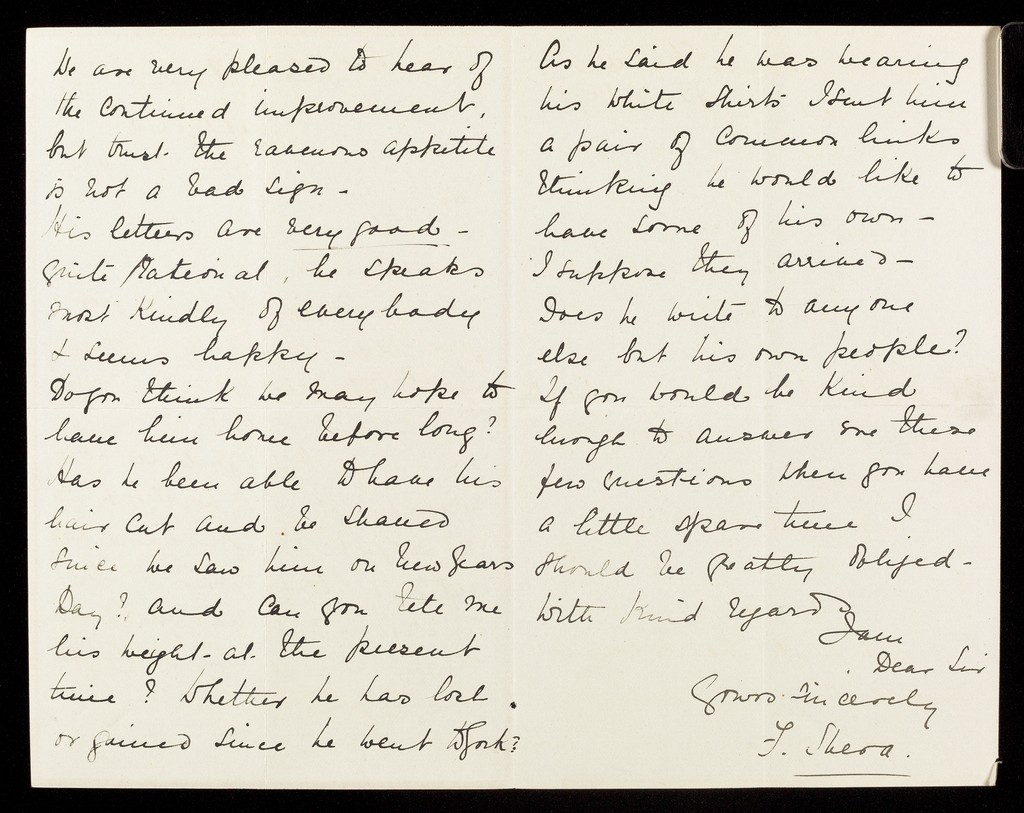 We are very pleased to hear of
the continued improvement,
but trust the ravenous appetite
is not a bad sign -
His letters are very good -
quite rational, he speaks
most kindly of everybody
& seems happy -
Do you think we may hope to
have him home before long?
Has he been able to have his
hair cut and be shaved
since we saw him on New Years
Day? and can you tell me
his weight at the present
time? Whether he has lost
or gained since he went to York?
As he said he was wearing
his white shirts I sent him
a pair of common links
thinking he would like to
have some of his own -
I suppose they arrived -
Does he write to any one
else but his own people?
If you would be kind
enough to answer me these
few questions when you have
a little spare time I
should be greatly obliged -
With kind regards
I am
Dear Sir
Yours sincerely
F. Shera.